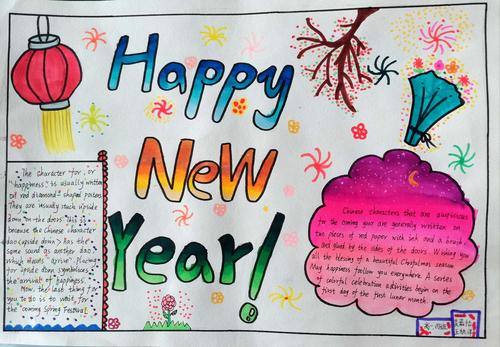 Happy
New
Year!
The character for, or
"happiness" is usually written
on red diamond-shaped posters.
They are usually stuck upside
down on the doors. This is
because the Chinese character
dao (upside down) has the
same sound as another dao
which means "arrive". Placing
fu upside down symbolizes
the arrival of happiness.
Now, the last thing for
you to do is to wait for
the coming Spring Festival
Chinese characters that are auspicious
for the coming year are generally written on
two pieces of red paper with ink and a brush,
and glued by the sides of the doors. Wishing you
all the blessing of a beautiful Christmas season.
May happiness follow you everywhere. A series
of colorful celebration activities begin on the
first day of the first lunar month.